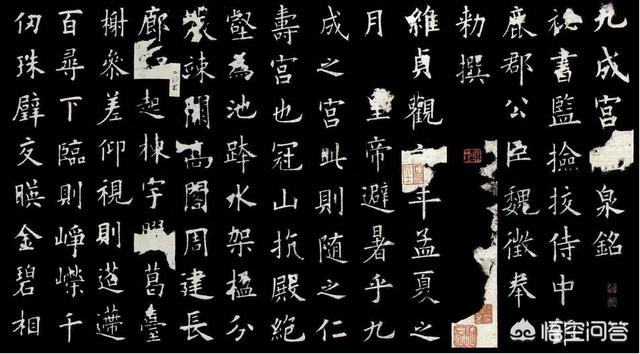 九成宮泉銘
祕書監撿挍侍中
鹿郡公臣魏徵奉
勅撰
維貞觀年孟夏之
月 皇帝避暑乎九
成之宮此則隨之仁
壽宮也冠山抗殿絕
壑為池跨水架楹分
巖竦闕高閣周建長
廊起棟宇葛臺
榭參差仰視則迢遰
百尋下臨則崢嶸千
仞珠璧交暎金碧相
悟空问答